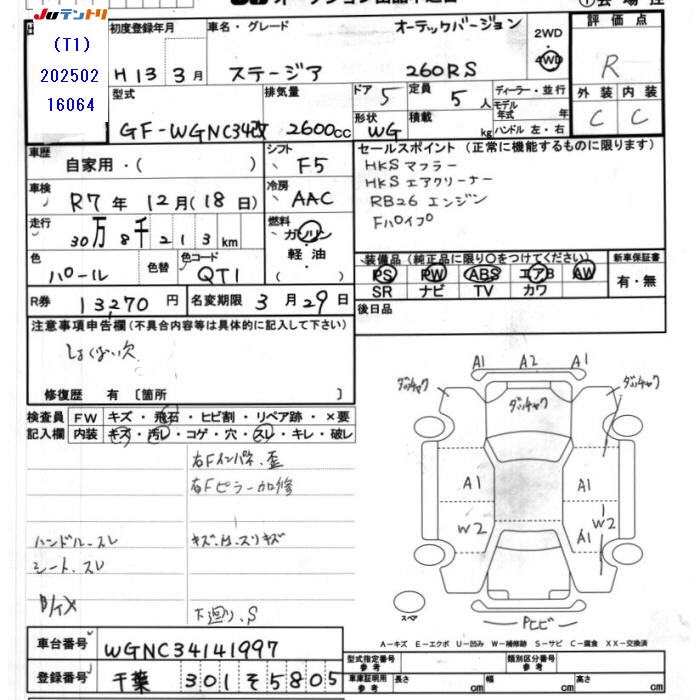 JUテントリ
(T1)
202502
16064
初度登録年月
H13 3月
車名・グレード
オーテックバージョン
ステージア 260RS
2WD
・
4WD
評価点
R
外装 内装
C C
型式
GF-WGNC34改
排気量
2600cc
ドア 5
定員 5人
形状 WG
積載 kg
ディーラー・並行
モデル年式 年
ハンドル 左・右
車歴
自家用・( )
シフト
F5
車検
R7年12月(18日)
冷房
AAC
走行
30万8千213km
燃料
ガソリン
・
軽油
( )
色
パール
色替
色コード
QT1
R券 13,270円
名変期限 3月29日
セールスポイント (正常に機能するものに限ります)
HKS マフラー
HKS エアクリーナー
RB26 エンジン
Fパイプ
装備品(純正品に限り○をつけてください)
PS PW ABS エアB AW
SR ナビ TV カワ
新車保証書
有・無
後日品
注意事項申告欄(不具合内容等は具体的に記入して下さい)
修復歴 有 〔箇所 〕
検査員記入欄
FW キズ・飛石・ヒビ割・リペア跡・×要
内装 キズ・汚レ・コゲ・穴・スレ・キレ・破レ
右Fインパネ、歪
右Fピラー加修
ハンドル、スレ
シート、スレ
下廻り、S
A1 A2 A1
A1
W2
A1
A1
W2
スペア
Pヒビ
A-キズ E-エクボ U-凹み W-補修跡 S-サビ C-腐食 XX-交換済
車台番号 WGNC34141997
登録番号 千葉 301 そ 5805
型式指定番号
参考
類別区分番号
参考
車庫証明用
参考
長さ cm
幅 cm
高さ cm